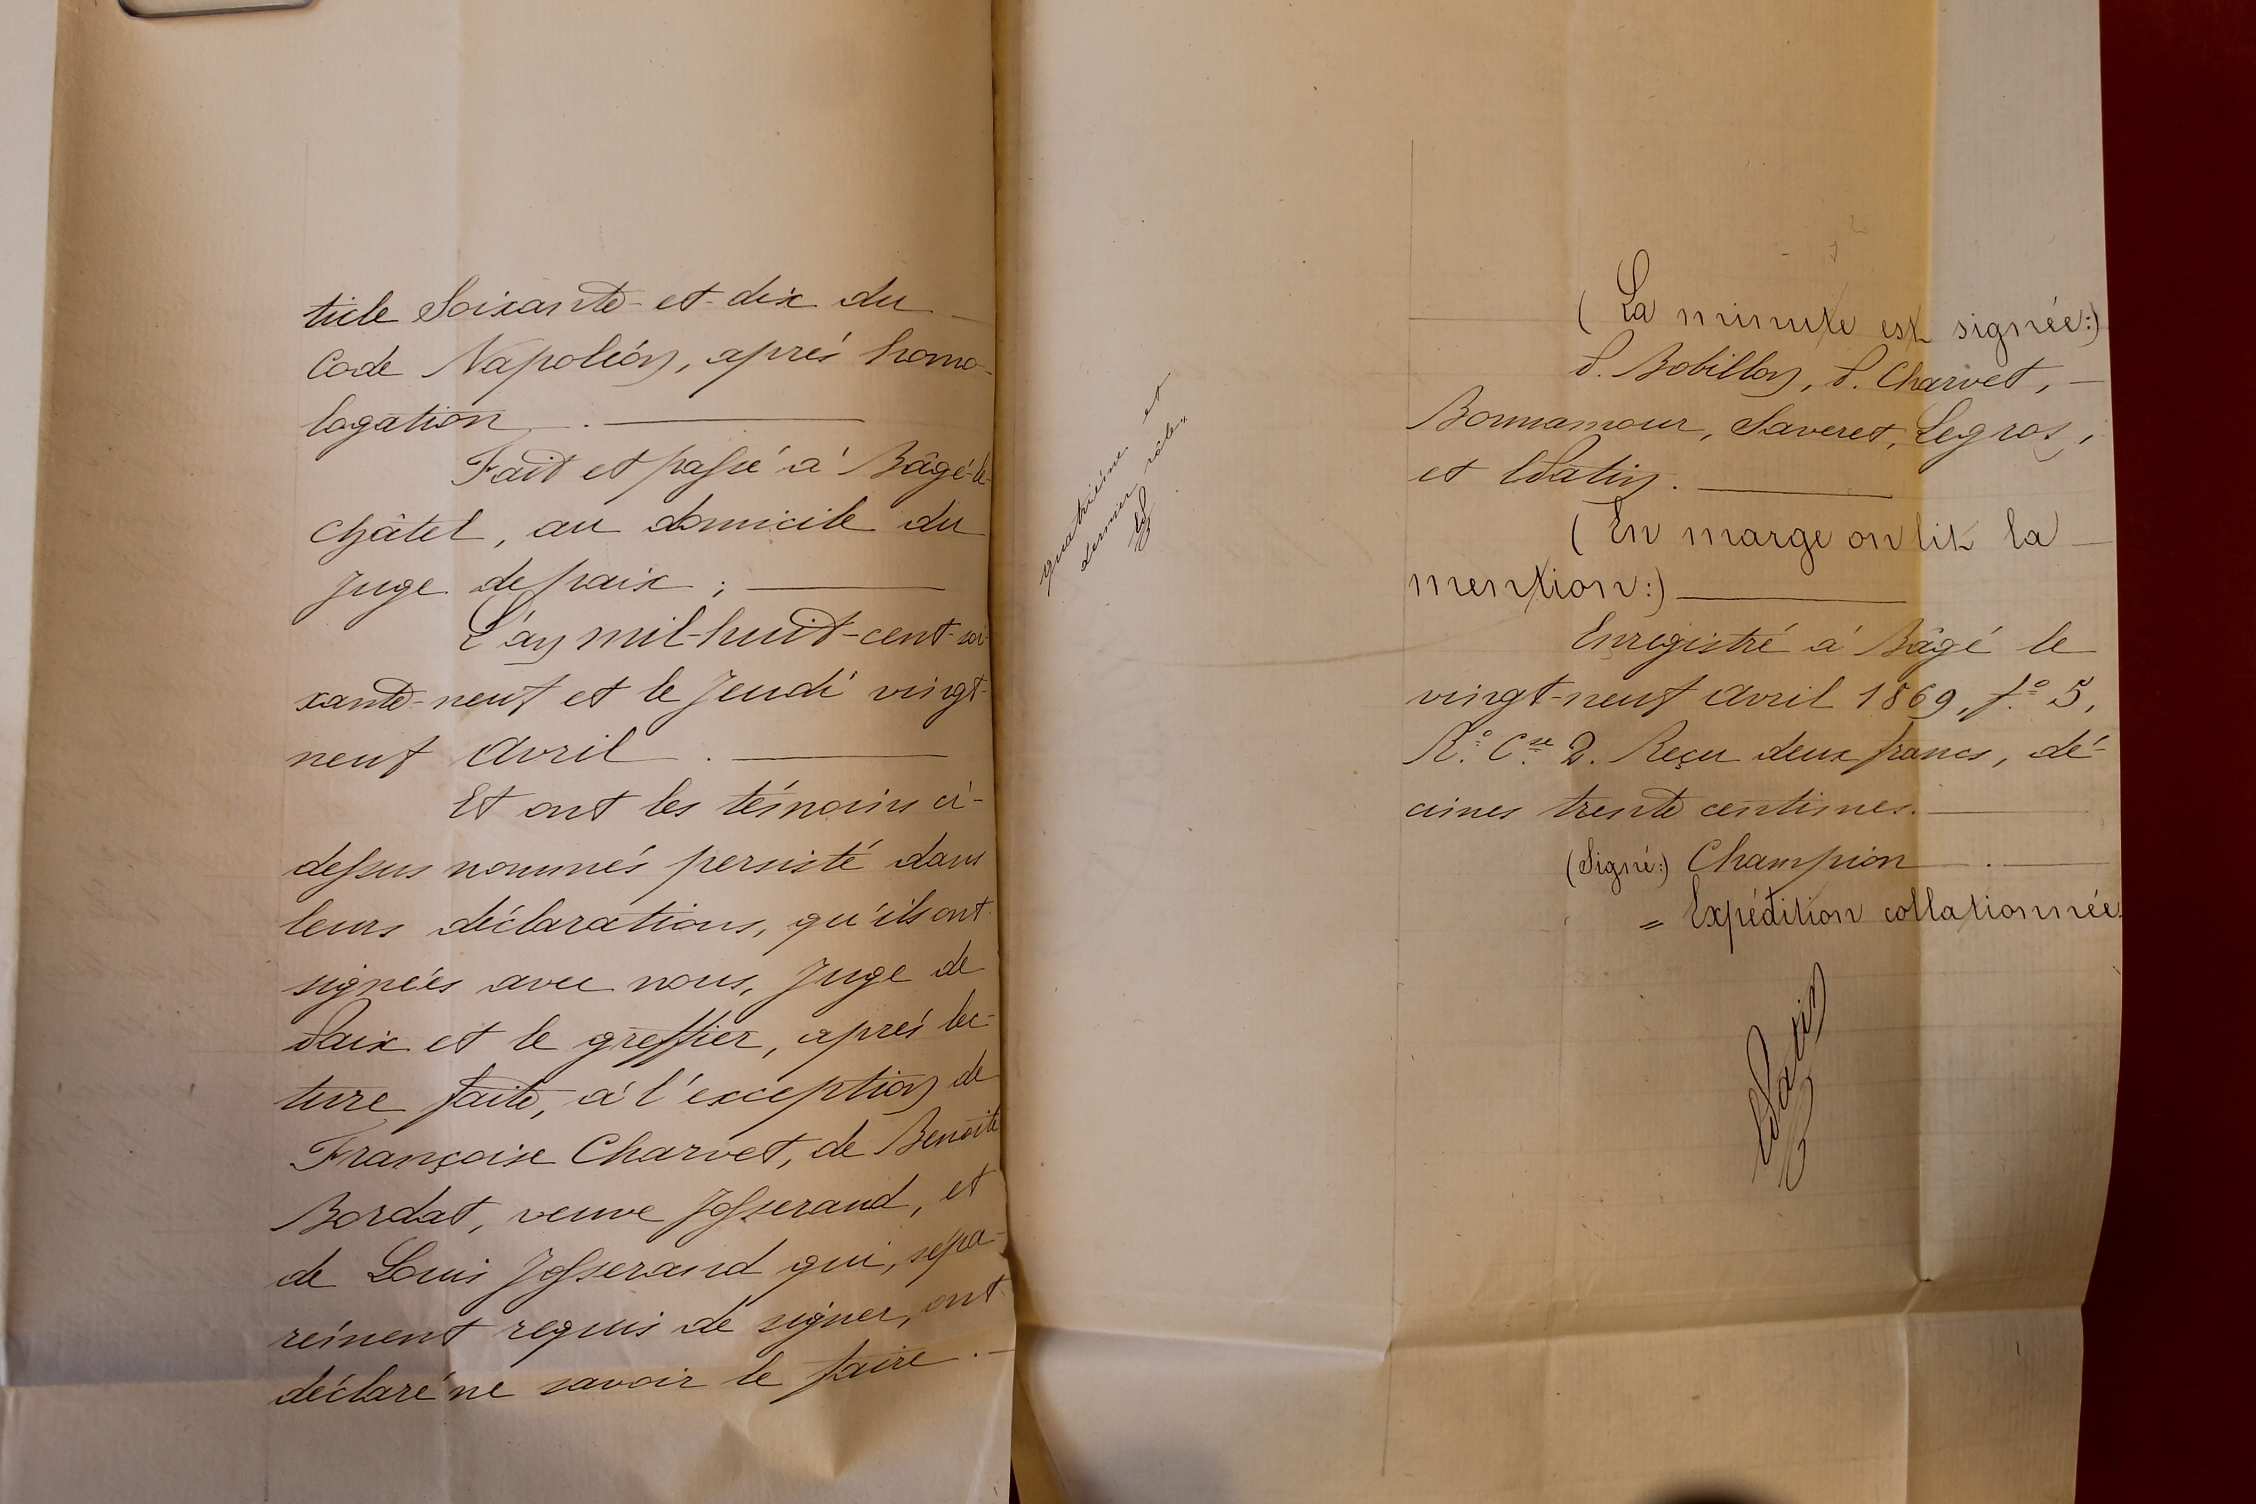 ticle Soixante-et-dix du
Code Napoléon, après homo-
logation.
Fait et passé à Bâgé-le-
châtel, au domicile du
Juge de paix ;
L'an mil-huit-cent-soi-
xante-neuf et le Jeudi vingt-
neuf Avril.
Et ont les témoins ci-
dessus nommés persisté dans
leurs déclarations, qu'ils ont
signées avec nous, Juge de
Paix et le greffier, après lec-
ture faite, à l'exception de
Françoise Charvet, de Benoîte
Bordat, veuve Josserand, et
de Louis Josserand qui, sépa-
rément requis de signer, ont
déclaré ne savoir le faire.
quatrième et
dernier rôle.
(La minute est signée:)
P. Bobillon, P. Charvet,
Bonnamour, Saveret, Legros,
et
(En marge on lit la
mention:)
Enregistré à Bâgé le
vingt-neuf Avril 1869, f.º 5,
R.º C.se 2. Reçu deux francs, dé-
cimes trente centimes.
(Signé:) Champion.
= Expédition collationnée